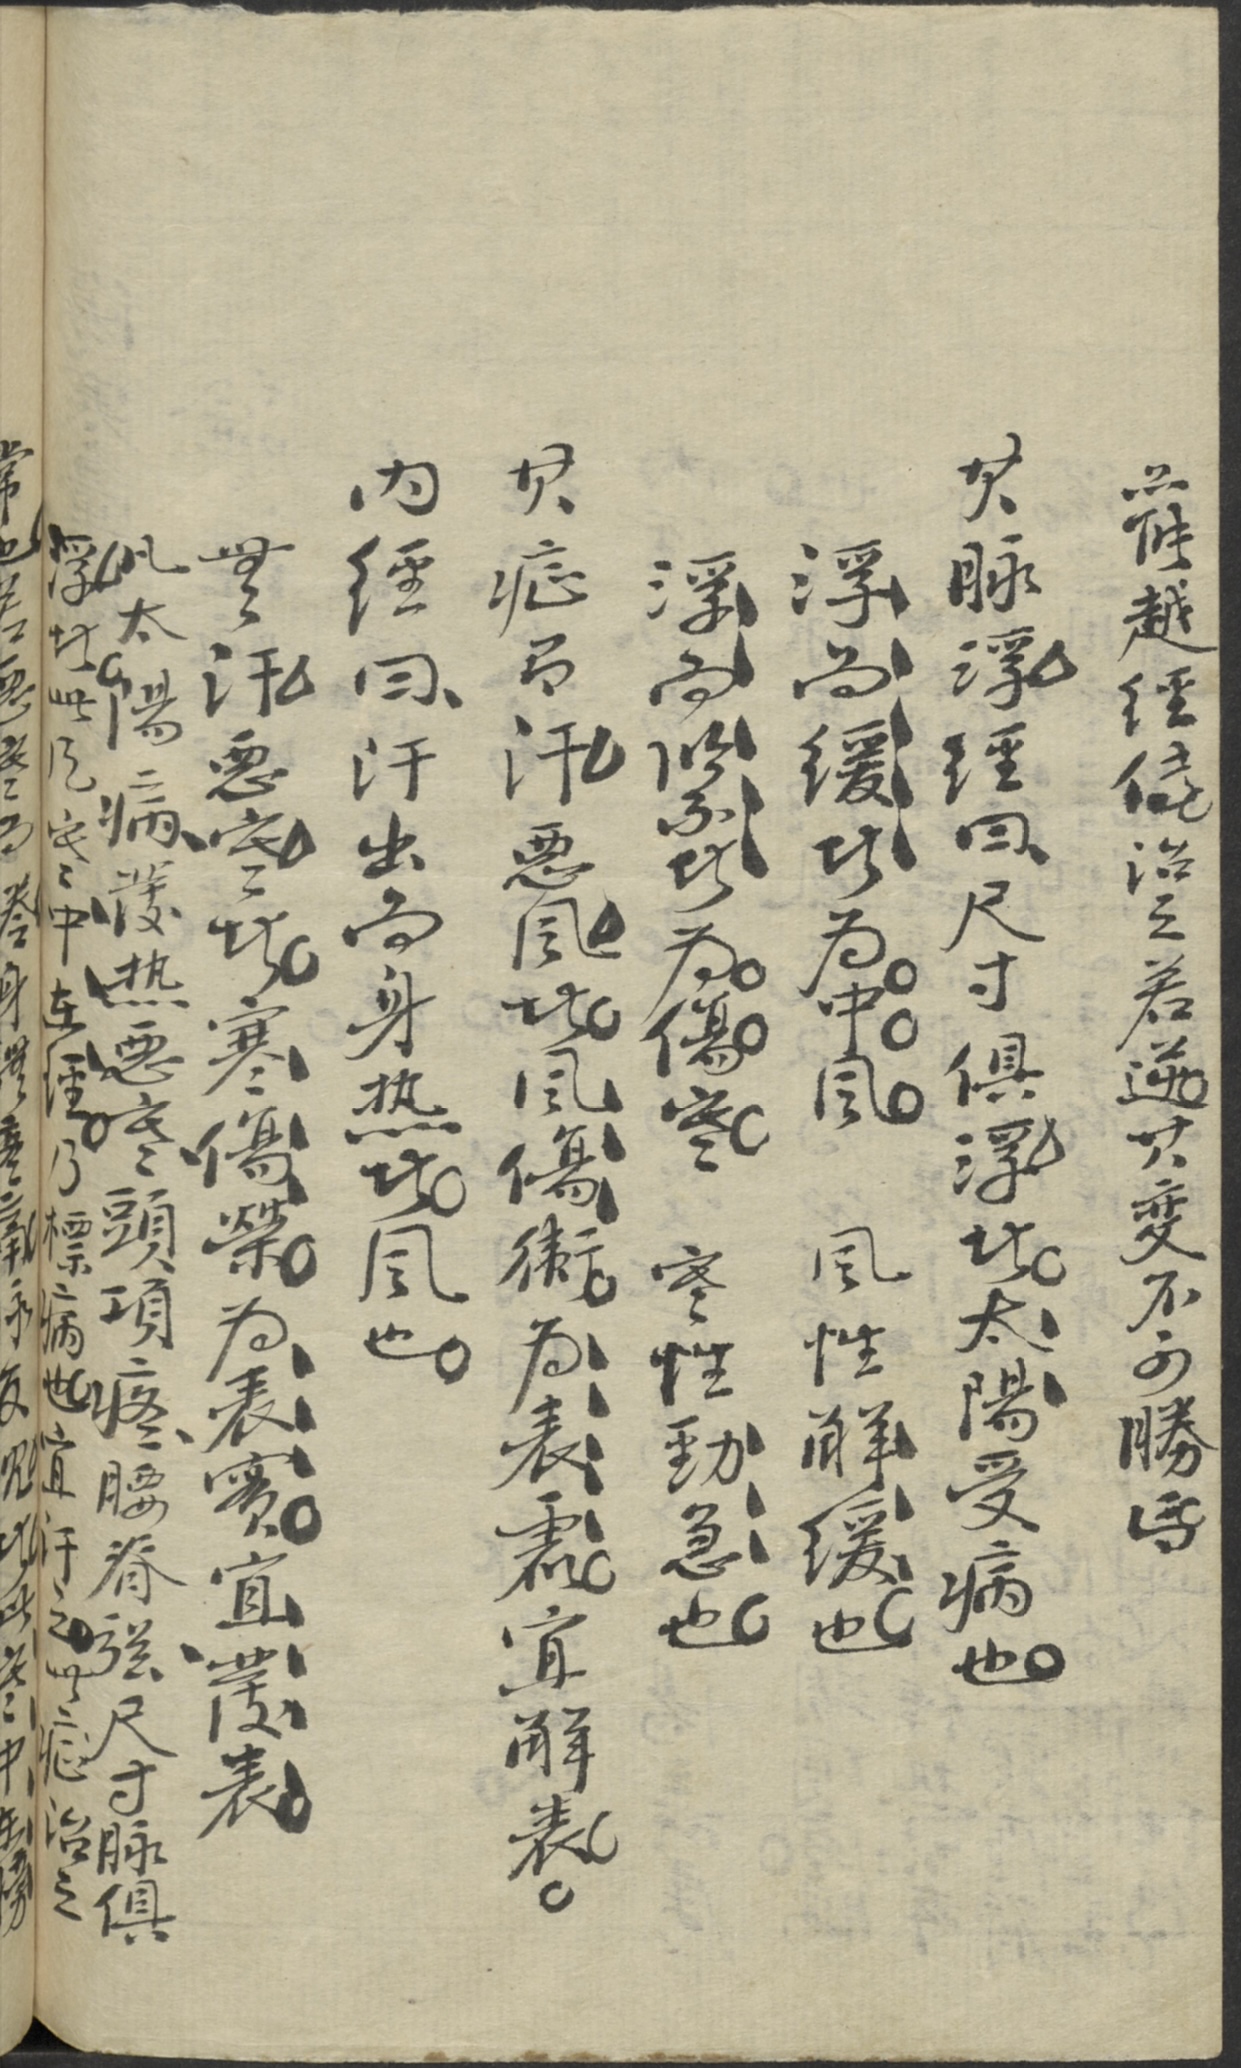 越經傳治之若逆其变不可勝
其脉浮經曰尺寸俱浮者太陽受病也
浮而緩者为中風 風性觧緩也
浮而緊者为傷寒 寒性勁急也
其症有汗惡風者風傷衛为表虛宜觧表
内經曰汗出而身热者風也
無汗惡寒者寒傷榮为表實宜發表
凡太陽病發热惡寒頭項疼腰脊强尺寸脉俱
浮者此風寒中在經乃標病也宜汗之此症治之
常也若惡寒而身寒脉反